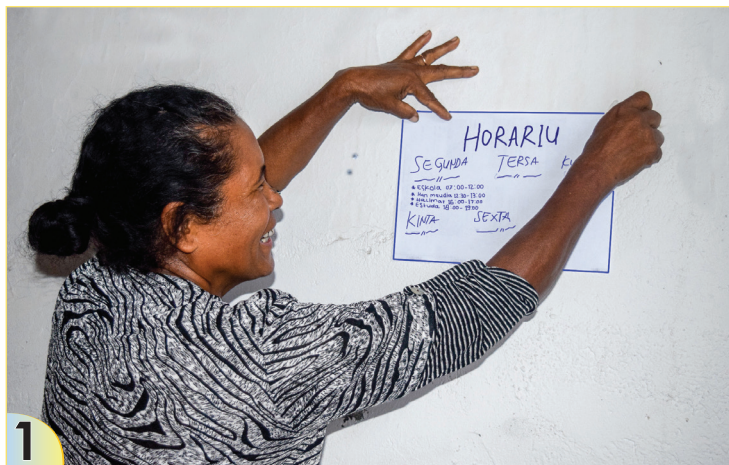 HORARIU
SEGUNDA TERSA
Eskola 07:00-12:00
Han meudia 12:30-13:00
Halimar 16:00-17:00
Estuda 18:00-19:00
KINTA SEXTA
1